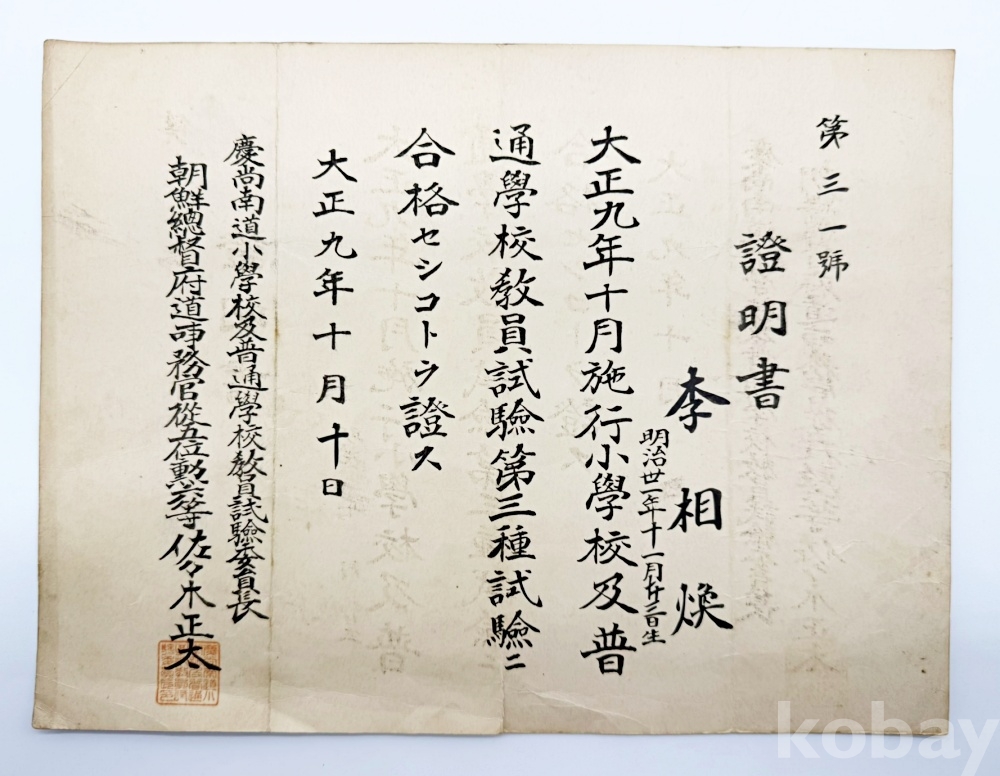 第三一號
證明書
李相煥
明治卅一年十一月廿三日生
大正九年十月施行小學校及普
通學校敎員試驗第三種試驗ニ
合格セシコトヲ證ス
大正九年十月十日
慶尚南道小學校及普通學校敎員試驗委員長
朝鮮總督府道事務官從五位勲六等佐々木正太
kobay